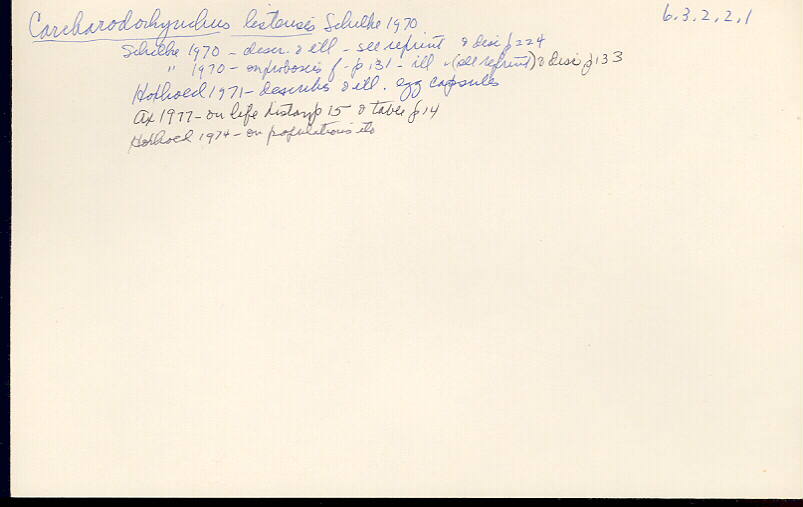 Carcharodorhynchus listensis Schilke 1970 6.3.2.2.1
Schilke 1970 - descr. & ill - see reprint & disc p 224
" 1970 - on proboscis f - p 131 - ill - (see reprint) & disc p 133
Hoxhold 1971 - describes & ill. egg capsules
Ax 1977 - on life history p 15 & table p 14
Hoxhold 1974 - on populations etc